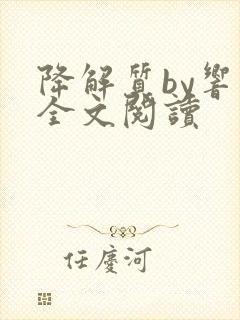 降解質by響
全文閱讀
任慶河